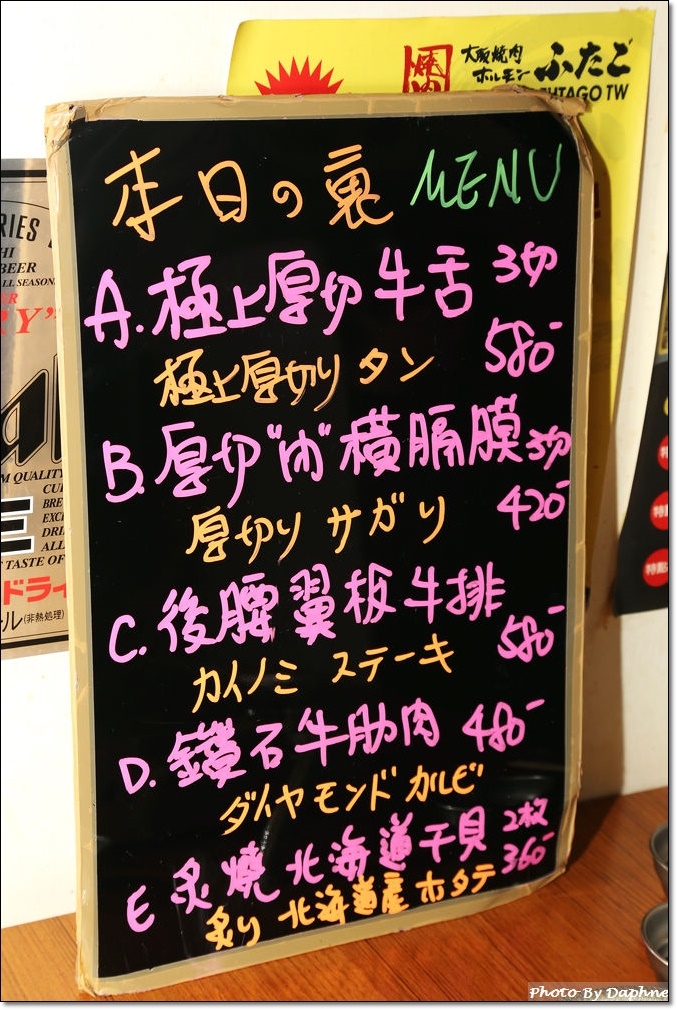 大阪焼肉
ホルモン ふたご
FUTAGO TW
本日の裏 MENU
A.極上厚切牛舌 3切
580-
極上厚切り タン
B.厚切
横膈膜 3切
420-
厚切り サガリ
C.後腰翼板牛排
580-
カイノミ ステーキ
D.鑽石牛肋肉 480-
ダイヤモンド カルビ
E 炙燒北海道干貝 2枚
360-
炙り 北海道産 ホタテ
BEER
ALL SEASON
M QUALITY
TASTE OF
ドライ
(非熱処理)
Photo By Daphne